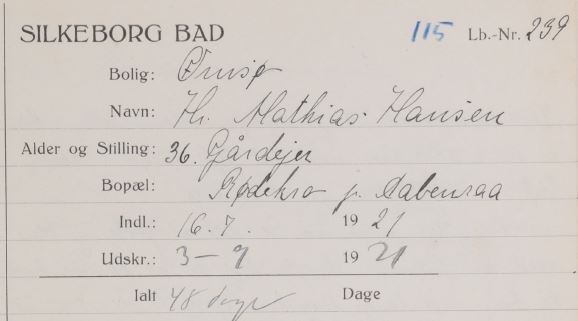 SILKEBORG BAD 115 Lb.-Nr. 239
Bolig: Ørnsø
Navn: Hr. Mathias Hansen
Alder og Stilling: 36. Gårdejer
Bopæl: Rødekro p. Aabenraa
Indl.: 16. 7. 1921
Udskr.: 3 - 9 1921
Ialt 48 dage Dage